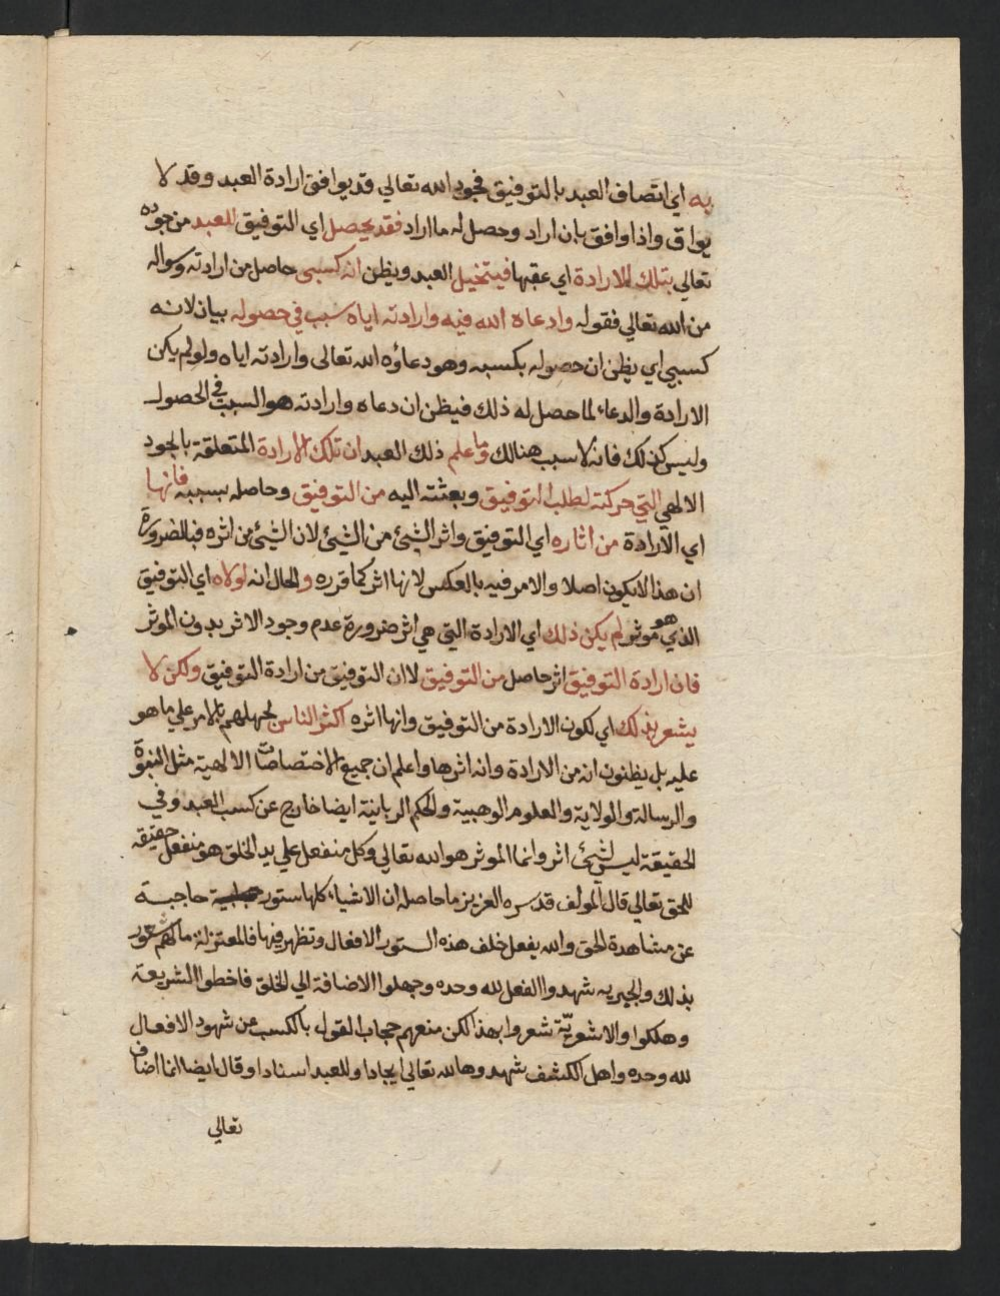 به اي اتصاف العبد بالتوفيق فجود الله تعالي قد يوافق ارادة العبد وقد لا
يوافق واذا وافق بان اراد وحصل له ما اراد فقد يحصل اي التوفيق للعبد من جوده
تعالي بتلك الارادة اي عقبها فيتخيل العبد ويظن انه كسبي حاصل من ارادته وسواله
من الله تعالي فقوله وادعاه الله فيه وارادته اياه سبب في حصوله بيان لانه
كسبي اي يظن ان حصوله بكسبه وهو دعاؤه الله تعالى وارادته اياه ولو لم يكن
الارادة والدعاء لما حصل له ذلك فيظن ان دعاه وارادته هو السبب في الحصول
وليس كذلك فانه لا سبب هنالك وما علم ذلك العبد ان تلك الارادة المتعلقة بالجود
الالهي التي حركته لطلب التوفيق وبعثته اليه من التوفيق وحاصله بسببه فانها
اي الارادة من اثاره اي التوفيق واثر الشيئ من الشيئ لان الشيئ من اثره فبالضرورة
ان هذا لا يكون اصلا والامر فيه بالعكس لانها اثر كما قرره والحال انه لولاه اي التوفيق
الذي هو موثر لم يكن ذلك اي الارادة التي هي اثر ضرورة عدم وجود الاثر بدون الموثر
فان ارادة التوفيق اثر حاصل من التوفيق لا ان التوفيق من ارادة التوفيق ولكن لا
يشعر بذلك اي لكون الارادة من التوفيق وانها اثره اكثر الناس لجهلهم بالامر علي ما هو
عليه بل يظنون انه من الارادة وانه اثرها واعلم ان جميع الاختصاصات الالهية مثل النبوة
والرسالة والولاية والعلوم الوهبية والحكم الربانية ايضا خارج عن كسب العبد وفي
الحقيقة ليس لشيئ اثر وانما الموثر هو الله تعالي وكل منفعل علي يد الخلق هو منفعل حقيقه
للحق تعالي قال المولف قدس سره العزيز ما حاصله ان الاشياء كلها ستور حاجبة
عن مشاهدة الحق والله يفعل خلف هذه الستور الافعال وتظهر فيها فالمعتزلة ما لهم شعور
بذلك والجبريه شهدوا الفعل لله وحده وجهلوا الاضافة الي الخلق فاخطوا الشريعة
وهلكوا والاشعريّة شعروا بهذا لكن منعهم حجاب القول بالكسب عن شهود الافعال
لله وحده واهل الكشف شهدوها لله تعالي ايجادا وللعبد اسنادا وقال ايضا انما اضاف
تعالي